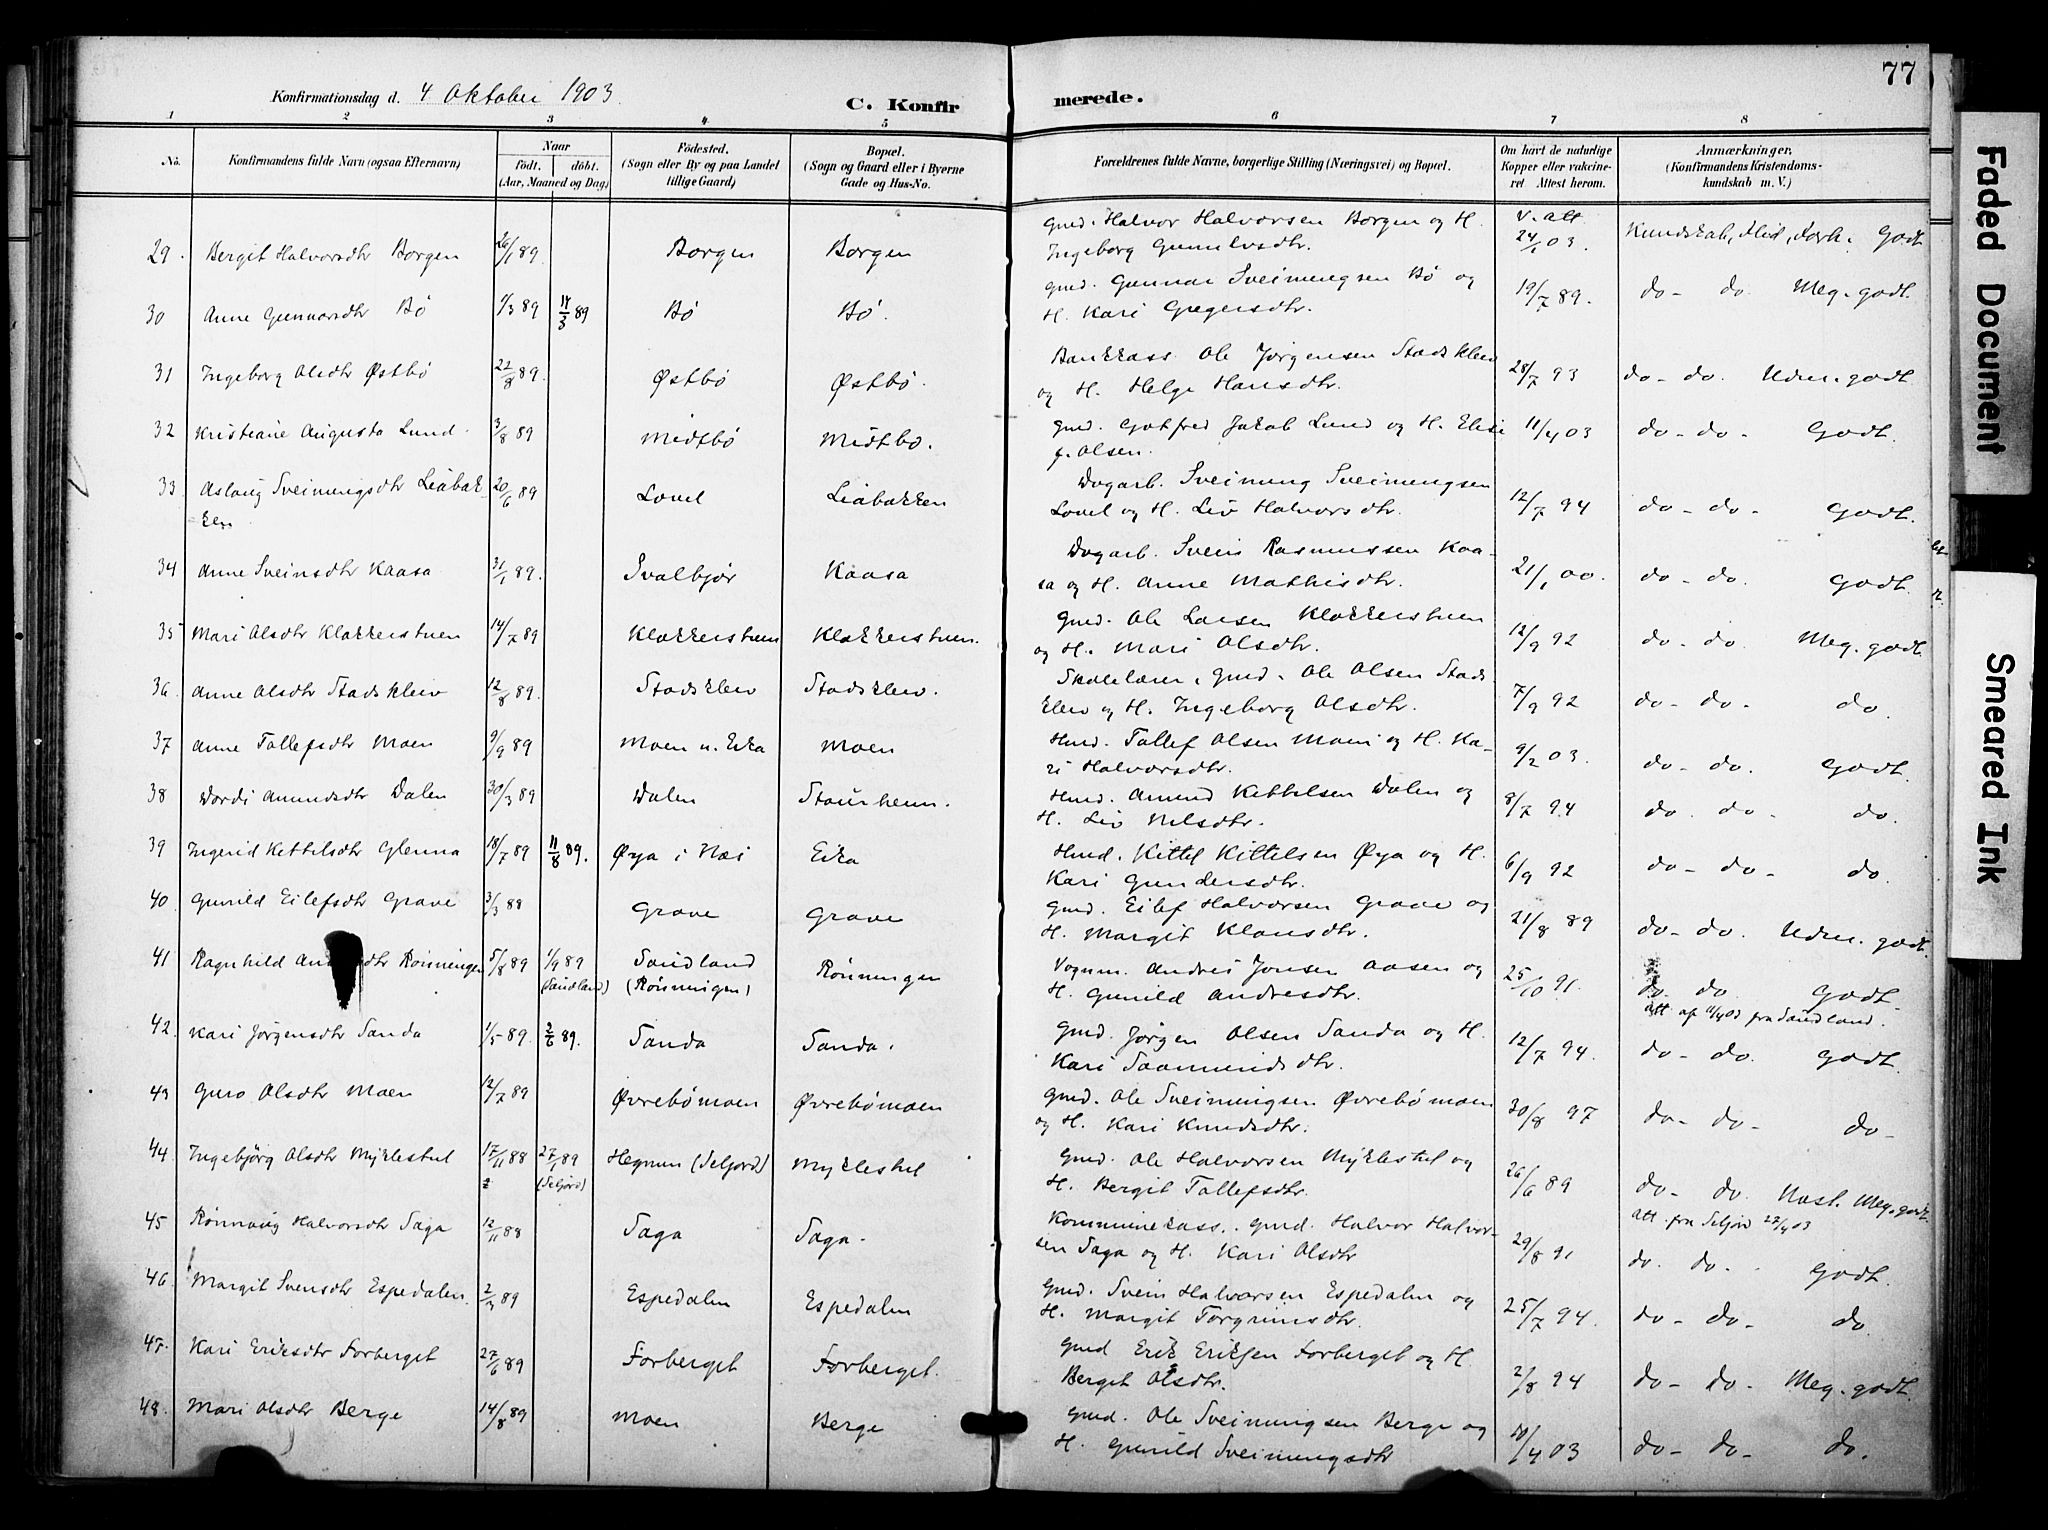 77
Konfirmationsdag d. 4 Oktober 1903. C. Konfir merede.
1 2 3 4 5 6 7 8
No. Konfirmandens fulde Navn (ogsaa Efternavn) Naar født. døbt. (Aar, Maaned og Dag) Fødested. (Sogn eller By og paa Landet tillige Gaard) Bopæl. (Sogn og Gaard eller i Byerne Gade og Hus-No. Forældrenes fulde Navne, borgerlige Stilling (Næringsvei) og Bopæl. Om havt de naturlige Kopper eller vakcineret Attest herom. Anmærkninger, (Konfirmandens Kristendomskundskab m. V.)
29. Bergit Halvorsdtr Borgen 26/1 89. Borgen Borgen Gmd. Halvor Halvorsen Borgen og H. V. att 24/1 03. Kundskab, Flid, Forh. Godt
Ingeborg Gunulvsdtr.
30 Anne Gunnarsdtr Bö 1/3 89 14/3 89 Bö Bö. Gmd. Gunnar Sveinungsen Bö og 19/7 89. do - do. Meg. godt.
H. Kari Gregersdtr.
31 Ingeborg Olsdtr Østbö 22/8 89. Østbö Østbö. Bankkass. Ole Jørgensen Stadskleiv 28/7 93 do - do. Udm. godt
og H. Helge Hansdtr.
32 Kristiane Augusta Lund. 3/8 89 Midtbö Midtbö. Gmd. Gotfred Jakob Lund og H. Elise 11/4 03 do - do - Godt.
f. Olsen.
33 Aslaug Sveinungsdtr Liabak- 20/6 89 Lovel Liabakken Dagarb. Sveinung Sveinungsen 12/7 94 do - do - Godt.
ken Lovel og H. Liv Halvorsdtr.
34 Anne Sveinsdtr Kaasa 31/1 89. Svalbjör Kaasa Dagarb. Svein Rasmussen Kaa- 21/1 00. do - do. Godt.
sa og H. Anne Mathisdtr.
35 Mari Olsdtr Klokkerstuen 14/7 89 Klokkerstuen Klokkerstuen. Gmd. Ole Larsen Klokkerstuen 12/9 92 do - do. Meg. godt.
og H. Mari Olsdtr.
36. Anne Olsdtr Stadskleiv 12/8 89. Stadskleiv Stadskleiv. Skolelærer, Gmd. Ole Olsen Stads 7/9 92 do - do - do.
kleiv og H. Ingeborg Olsdtr.
37 Anne Tollefsdtr Moen 9/9 89 Moen u. Eika Moen Hmd. Tollef Olsen Moen og H. Ka- 9/2 03. do - do. Godt.
ri Halvorsdtr.
38 Dordi Amundsdtr Dalen 30/3 89 Dalen Staurheim. Hmd. Amund Kettelsen Dalen og 8/7 94 do. do - do.
H. Liv Nilsdtr.
39 Ingerid Kettilsdtr Glenna 18/7 89 11/8 89. Øya i Nes Eika Hmd. Kittel Kittelsen Øya og H. 6/9 92 do - do - do.
Kari Gundersdtr.
40 Gunild Eilefsdtr Grave 3/3 88 Grave Grave Gmd. Eilef Halvorsen Grave og 21/8 89 do - do. Udm. godt
H. Margit Klausdtr.
41 Ragnhild And dtr Rönningen 5/8 89 1/9 89 (Sandland) Saudland (Rönningen) Rönningen Vognm. Andres Jonsen Aasen og 25/10 91. do. do. Godt
H. Gunild Andresdtr. att af 11/4 03 fra Saudland.
42. Kari Jørgensdtr Sanda 1/5 89 2/6 89. Sanda Sanda. Gmd. Jørgen Olsen Sanda og H. 12/7 94. do - do. Godt.
Kari Saamundsdtr.
43 Guro Olsdtr Moen 12/7 89 Øvrebömoen Øvrebömoen Gmd. Ole Sveinungsen Øvrebömoen 30/8 97 do - do - do -
og H. Kari Knudsdtr.
44. Ingebjörg Olsdtr Myklestul 17/11 88 27/1 89 (Seljord) Hegnum (Seljord) Myklestul Gmd. Ole Halvorsen Myklestul og 26/6 89 do - do. Næst. Meg. godt.
H. Bergit Tollefsdtr. att. fra Seljord 27/4 03
45 Rönnaug Halvorsdtr Saga 12/11 88 Saga Saga. Kommunekass. Gmd. Halvor Halvor- 29/8 91 do. do. Godt.
sen Saga og H. Kari Olsdtr
46 Margit Svensdtr Espedalen. 2/3 89 Espedalen Espedalen Gmd. Svein Halvorsen Espedalen og 25/7 94. do - do - do
H. Margit Torgrimsdtr.
47. Kari Eriksdtr Forberget 27/6 89 Forberget Forberget. Gmd Erik Eriksen Forberget og H. 2/8 94 do - do - Meg. godt.
Berget Olsdtr.
48. Mari Olsdtr Berge 14/8 89 Moen Berge Gmd. Ole Sveinungsen Berge og 10/4 03 do - do - do.
H. Gunild Sveinungsdtr
Faded Document
Smeared Ink